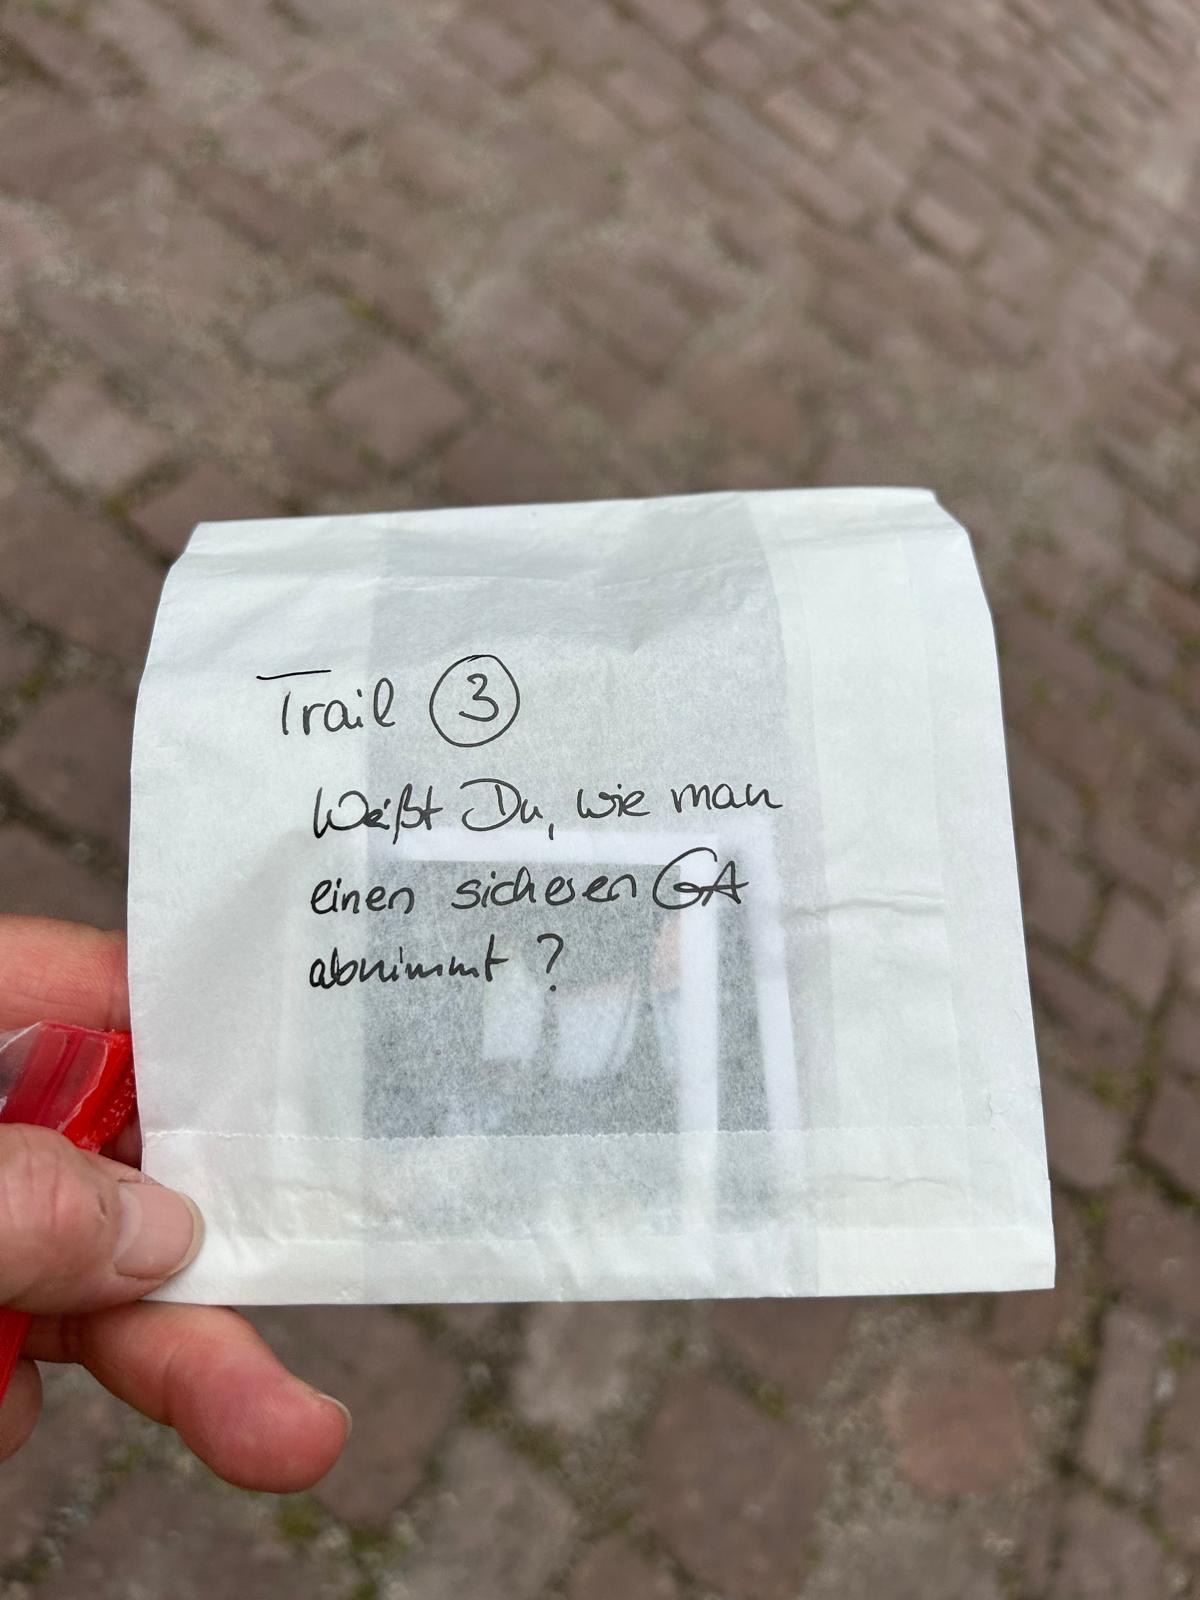 Trail 3
Weißt Du, wie man
einen sicheren GA
abnimmt?